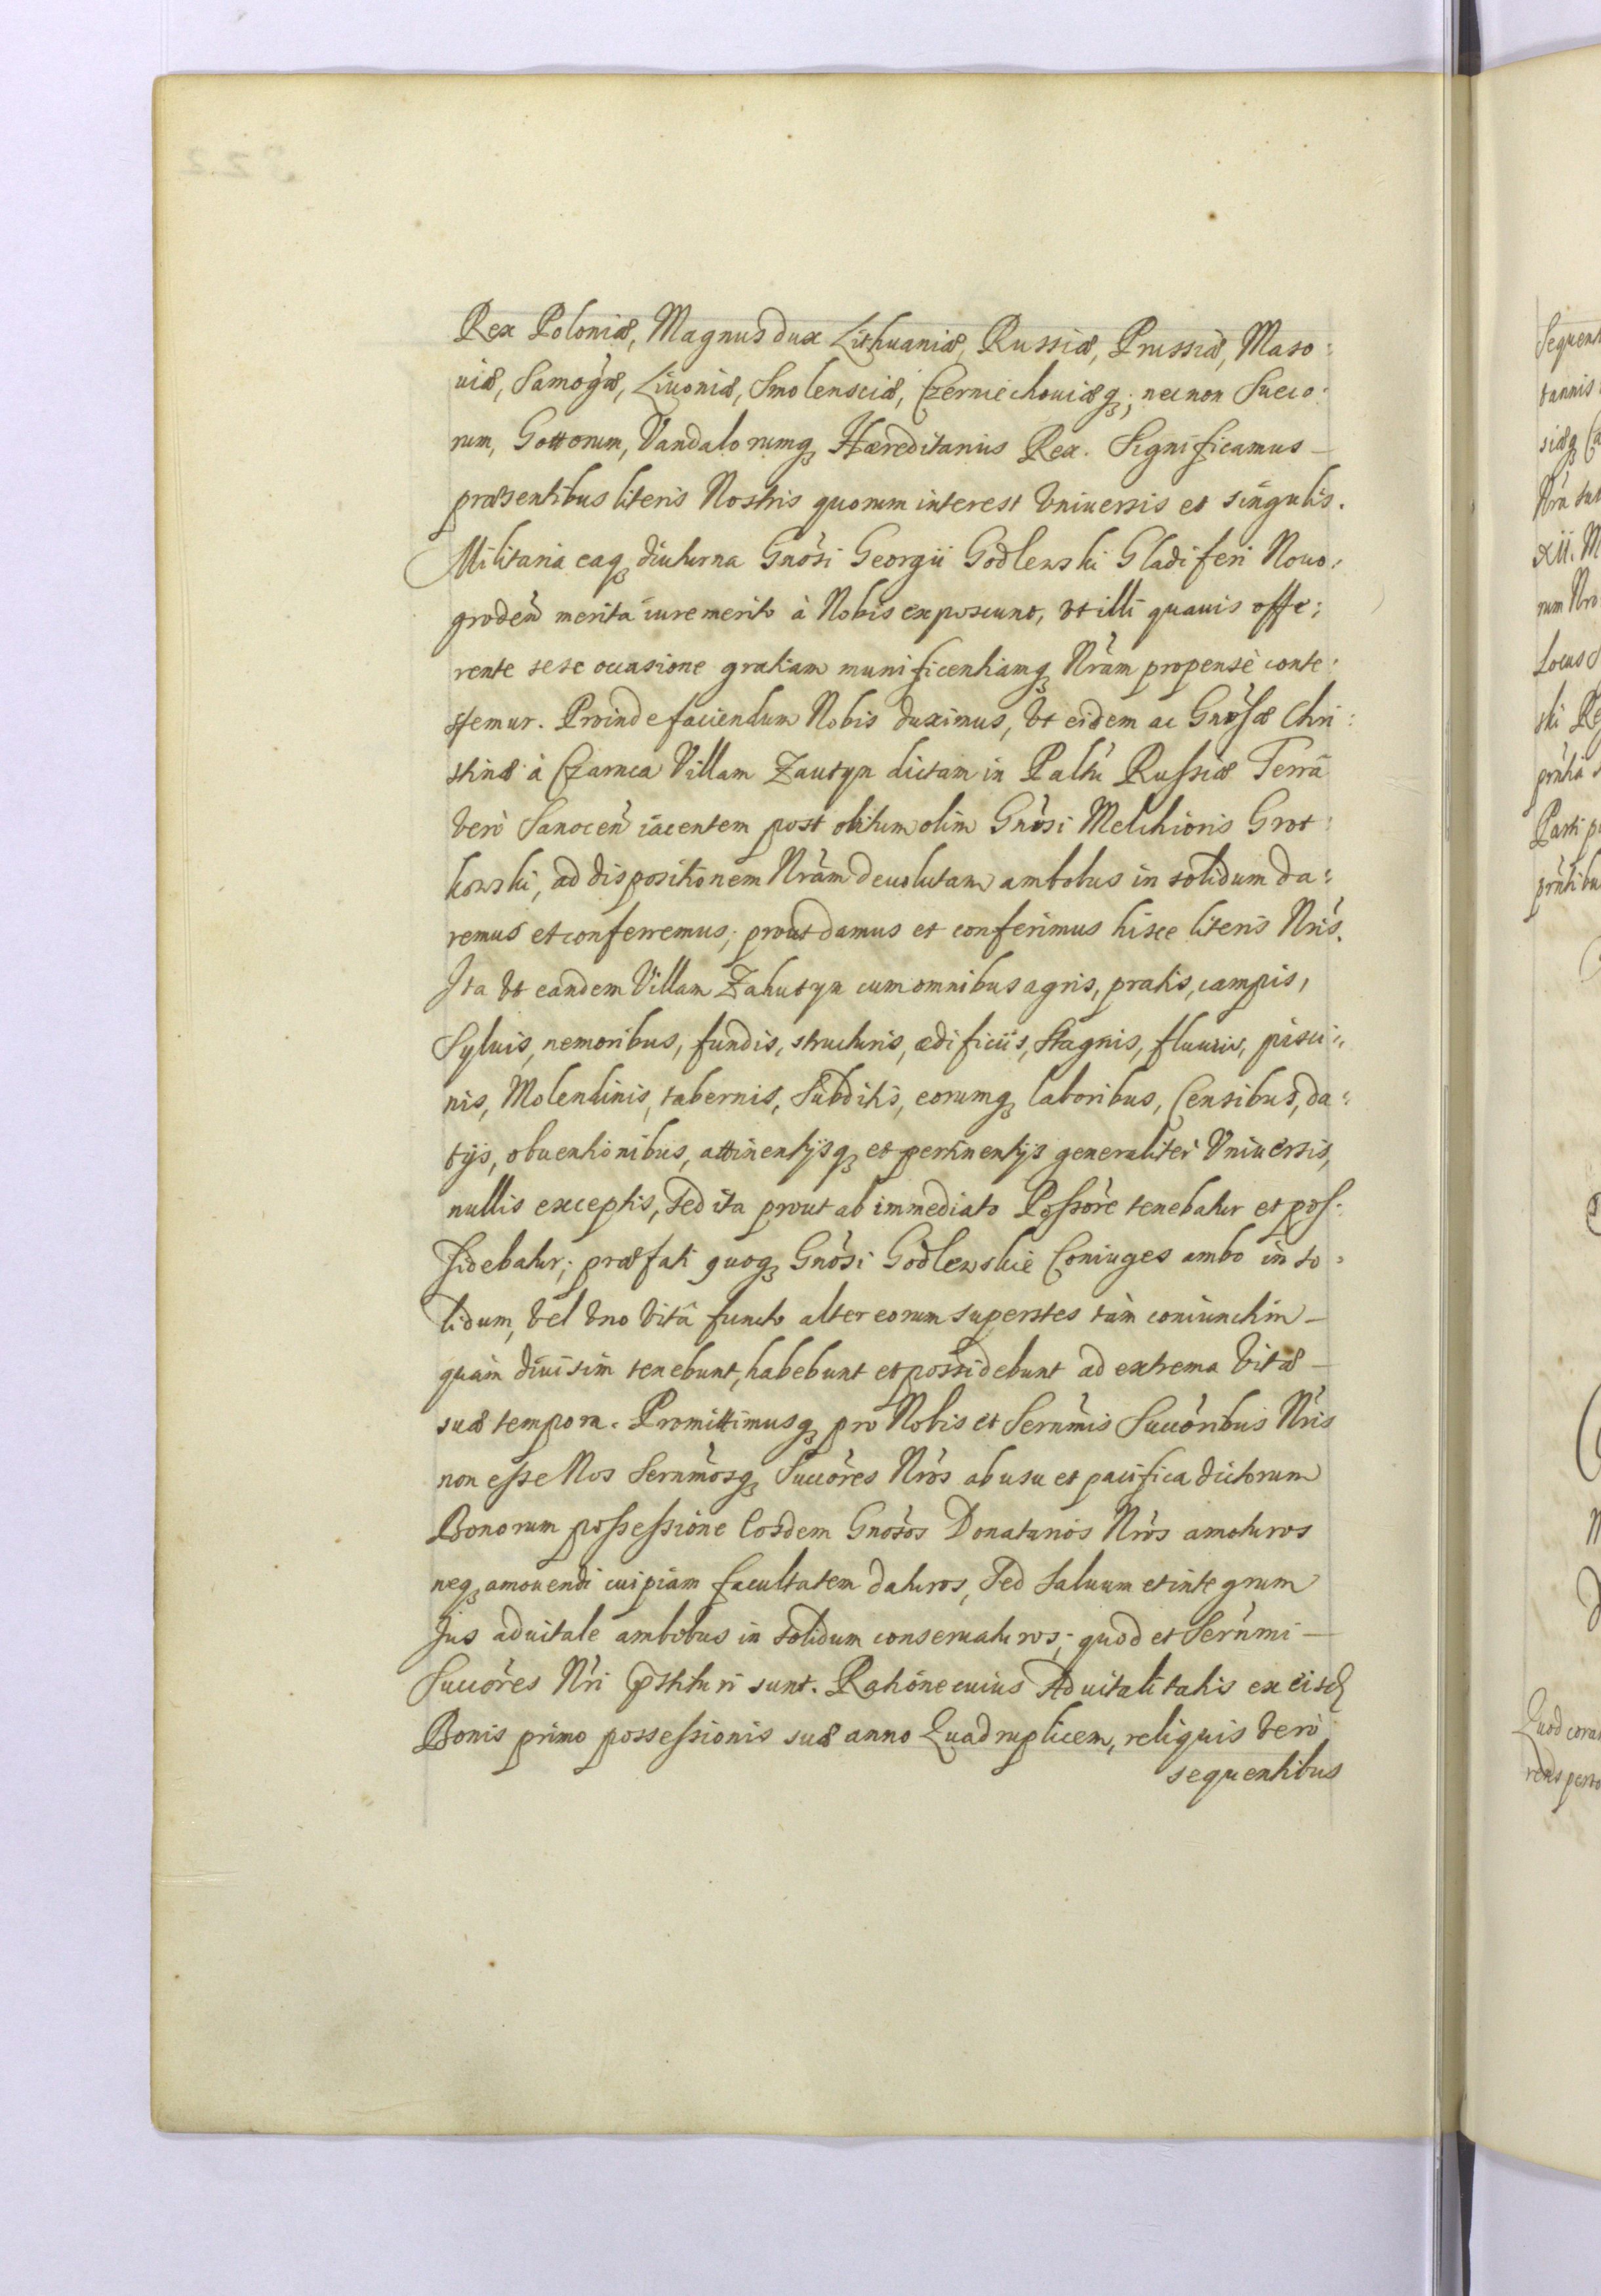 Rex Poloniæ, Magnus dux Lithuaniæ, Russiæ, Prussiæ, Maso:
uiæ, Samog̀æ, Liuoniæ, Smolensciæ, Czerniechouiæq₃; nec non Sueco:
rum, Gottorum, Vandalorumq₃ Hæreditarius Rex. Significamus —
præsentibus literis Nostris quorum interest Vniuersis et singulis.
Militaria eaq₃ diuturna Gnòsi Georgii Godlewski Gladiferi Nouo:
grodeǹ merita iure merito à Nobis exposcunt, Vt illi quauis offe:
rente sese occasione gratiam munificentiamq₃ Nràm propensè conte:
stemur. Proinde faciendum Nobis duximus, Vt eidem ac Gnòsæ Chri:
stinæ à Czarnca Villam Zautyn dictam in Paltù Russiæ Terrâ
Verò Sanoceǹ iacentem post obitum olim Gnòsi Melchioris Grot:
kowski, ad dispositionem Nràm deuolutam ambobus in solidum da:
remus et conferremus; prout damus et conferimus hisce literis Nrìs.
Ita Vt eandem Villam Zahutyn cum omnibus agris, pratis, campis,
Syluis, nemoribus, fundis, structuris, ædificiis, stagnis, fluuiis, pisci:
nis, Molendinis, tabernis, Subditis, eorumq₃ laboribus, Censibus, da:
tijs, obuentionibus, attinentijsq₃ et pertinentijs generaliter Vniuersis,
nullis exceptis, Sed ita prout ab immediato Possòre tenebatur et pos:
sidebatur; præfati quoq₃ Gnòsi Godlewskie Coniuges ambo in so:
lidum, Vel Vno Vitâ functo alter eorum superstes tàm coniunctim —
quàm diuisim tenebunt, habebunt et possidebunt ad extrema Vitæ —
suæ tempora. Promittimusq₃ pro Nobis et Sernm̀is Succòribus Nrìs
non esse Nos Sernm̀osq₃ Succòres Nròs ab usu et pacifica dictorum
Bonorum possessione Eosdem Gnòsos Donatarios Nròs amoturos
neq₃ amouendi cuipiam facultatem daturos, Sed saluum et integrum
Jus aduitale ambobus in solidum conseruaturos; quod et Sernm̀i —
Succòres Nrì p̄stituri sunt. Ratione cuius Aduitalitatis ex eisd₃
Bonis primo possessionis suæ anno Quadruplicem, reliquis Verò
sequentibus